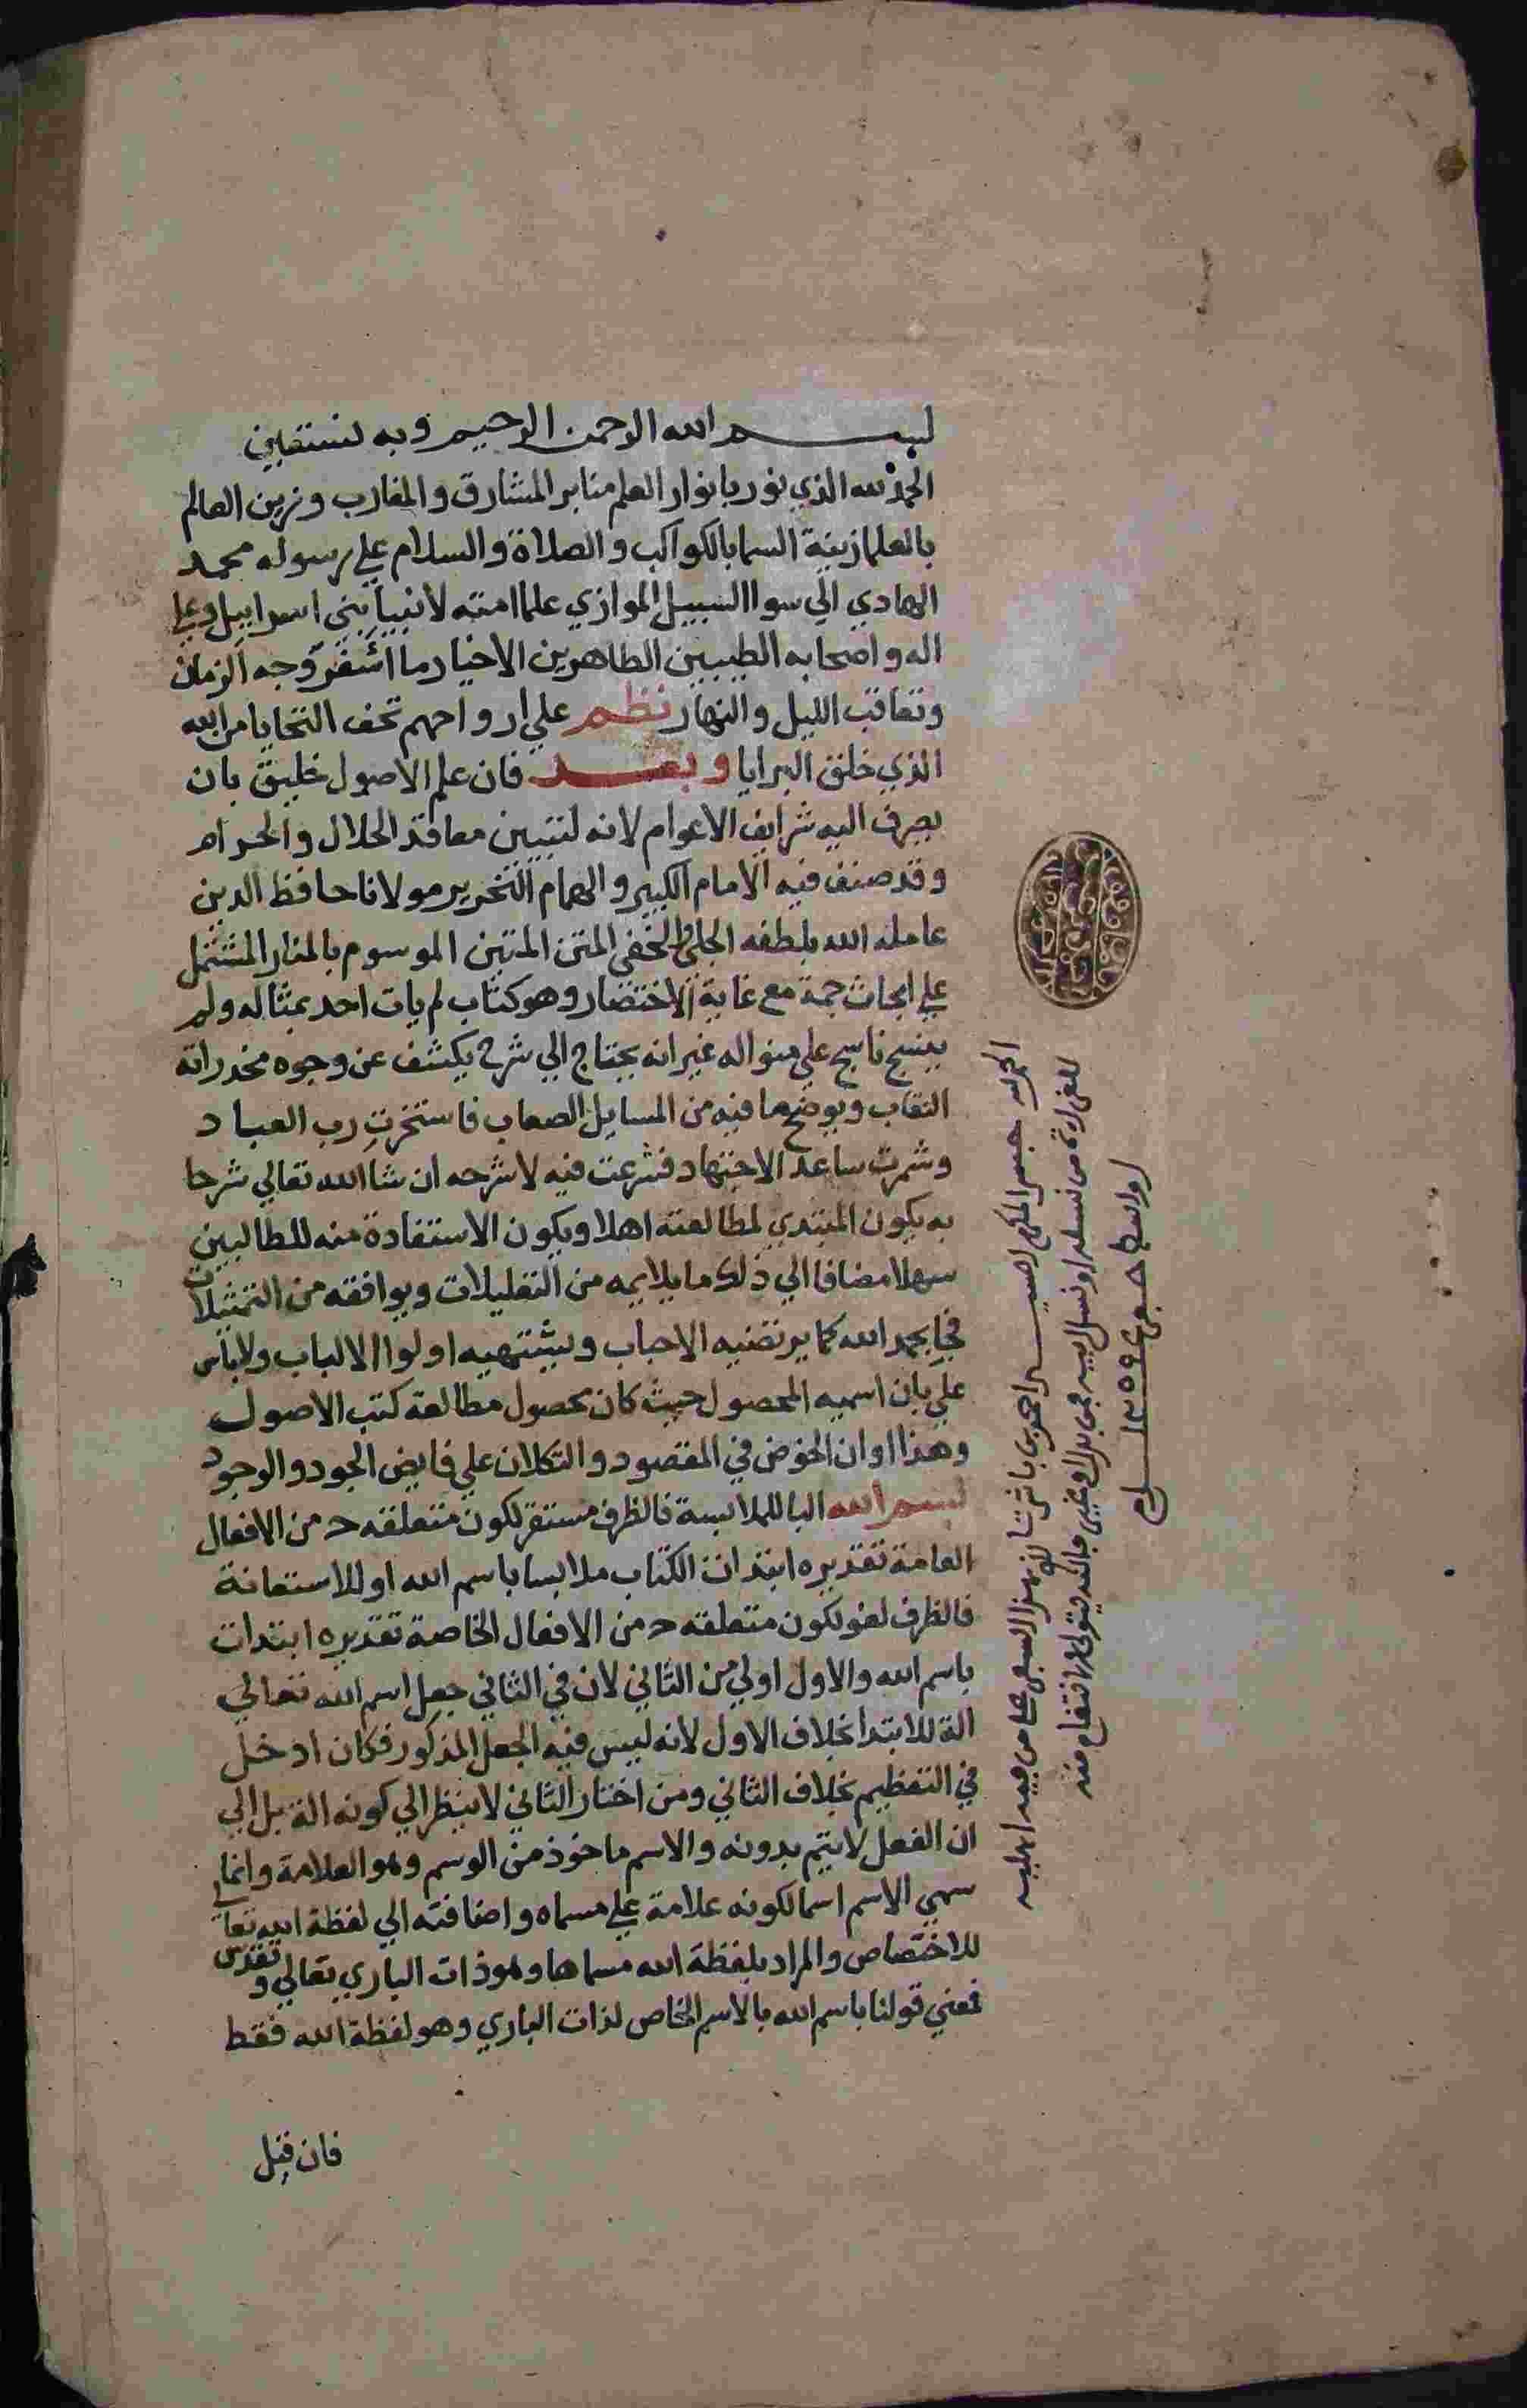 بسم الله الرحمن الرحيم وبه نستعين
الحمد لله الذي نور بانوار العلم منابر المشارق والمغارب وزين العالم
بالعلما زينة السما بالكواكب والصلاة والسلام علي رسوله محمد
الهادي الي سوا السبيل الموازي علما امته لانبيا بني اسراييل وعلي
اله واصحابه الطيبين الطاهرين الاخيار ما اسفر وجه الزمان
وتعاقب الليل والنهار نظم علي ارواحهم تحف التحايا من الله
الذي خلق البرايا وبعد فان علم الاصول خليق بان
يصرف اليه شرايف الاعوام لانه لتبيين معاقد الحلال والحرام
وقد صنف فيه الامام الكبير والهمام النحرير مولانا حافظ الدين
عامله الله بلطفه الجلي والخفي المتن المتين الموسوم بالمنار المشتمل
علي ابحاث جمة مع غاية الاختصار وهو كتاب لم يات احد بمثاله ولم
ينسج ناسج علي منواله غير انه يحتاج الي شرح يكشف عن وجوه مخدراته
النقاب ويوضح ما فيه من المسايل الصعاب فاستخرت رب العباد
وشمرت ساعد الاجتهاد فشرعت فيه لاشرحه ان شا الله تعالي شرحا
به يكون المبتدي لمطالعته اهلا ويكون الاستفادة منه للطالبين
سهلا مضافا الي ذلك ما يلايمه من التعليلات ويوافقه من التمثيلات
فجا بحمد الله كما يرتضيه الاحباب ويشتهيه اولوا الالباب ولا باس
علي بان اسميه المحصول حيث كان بحصول مطالعة كتب الاصول
وهذا اوان الخوض في المقصود والتكلان علي فايض الجود والوجود
بسم الله البا للملابسة فالظرف مستقر لكون متعلقه ح من الافعال
العامة تقديره ابتدات الكتاب ملابسا باسم الله او للاستعانة
فالظرف لغو لكون متعلقه ح من الافعال الخاصة تقديره ابتدات
باسم الله والاول اولي من الثاني لان في الثاني جعل اسم الله تعالي
الة للابتدا بخلاف الاول لانه ليس فيه الجعل المذكور فكان ادخل
في التعظيم بخلاف الثاني ومن اختار الثاني لا ينظر الي كونه الة بل الي
ان الفعل لا يتم بدونه والاسم ماخوذ من الوسم وهو العلامة وانما
سمي الاسم اسما لكونه علامة علي مسماه واضافته الي لفظة الله تعالي
للاختصاص والمراد بلفظة الله مسماها وهو ذات الباري تعالي وتقدس
فمعني قولنا باسم الله بالاسم الخاص لذات الباري وهو لفظة الله فقط
فان قيل